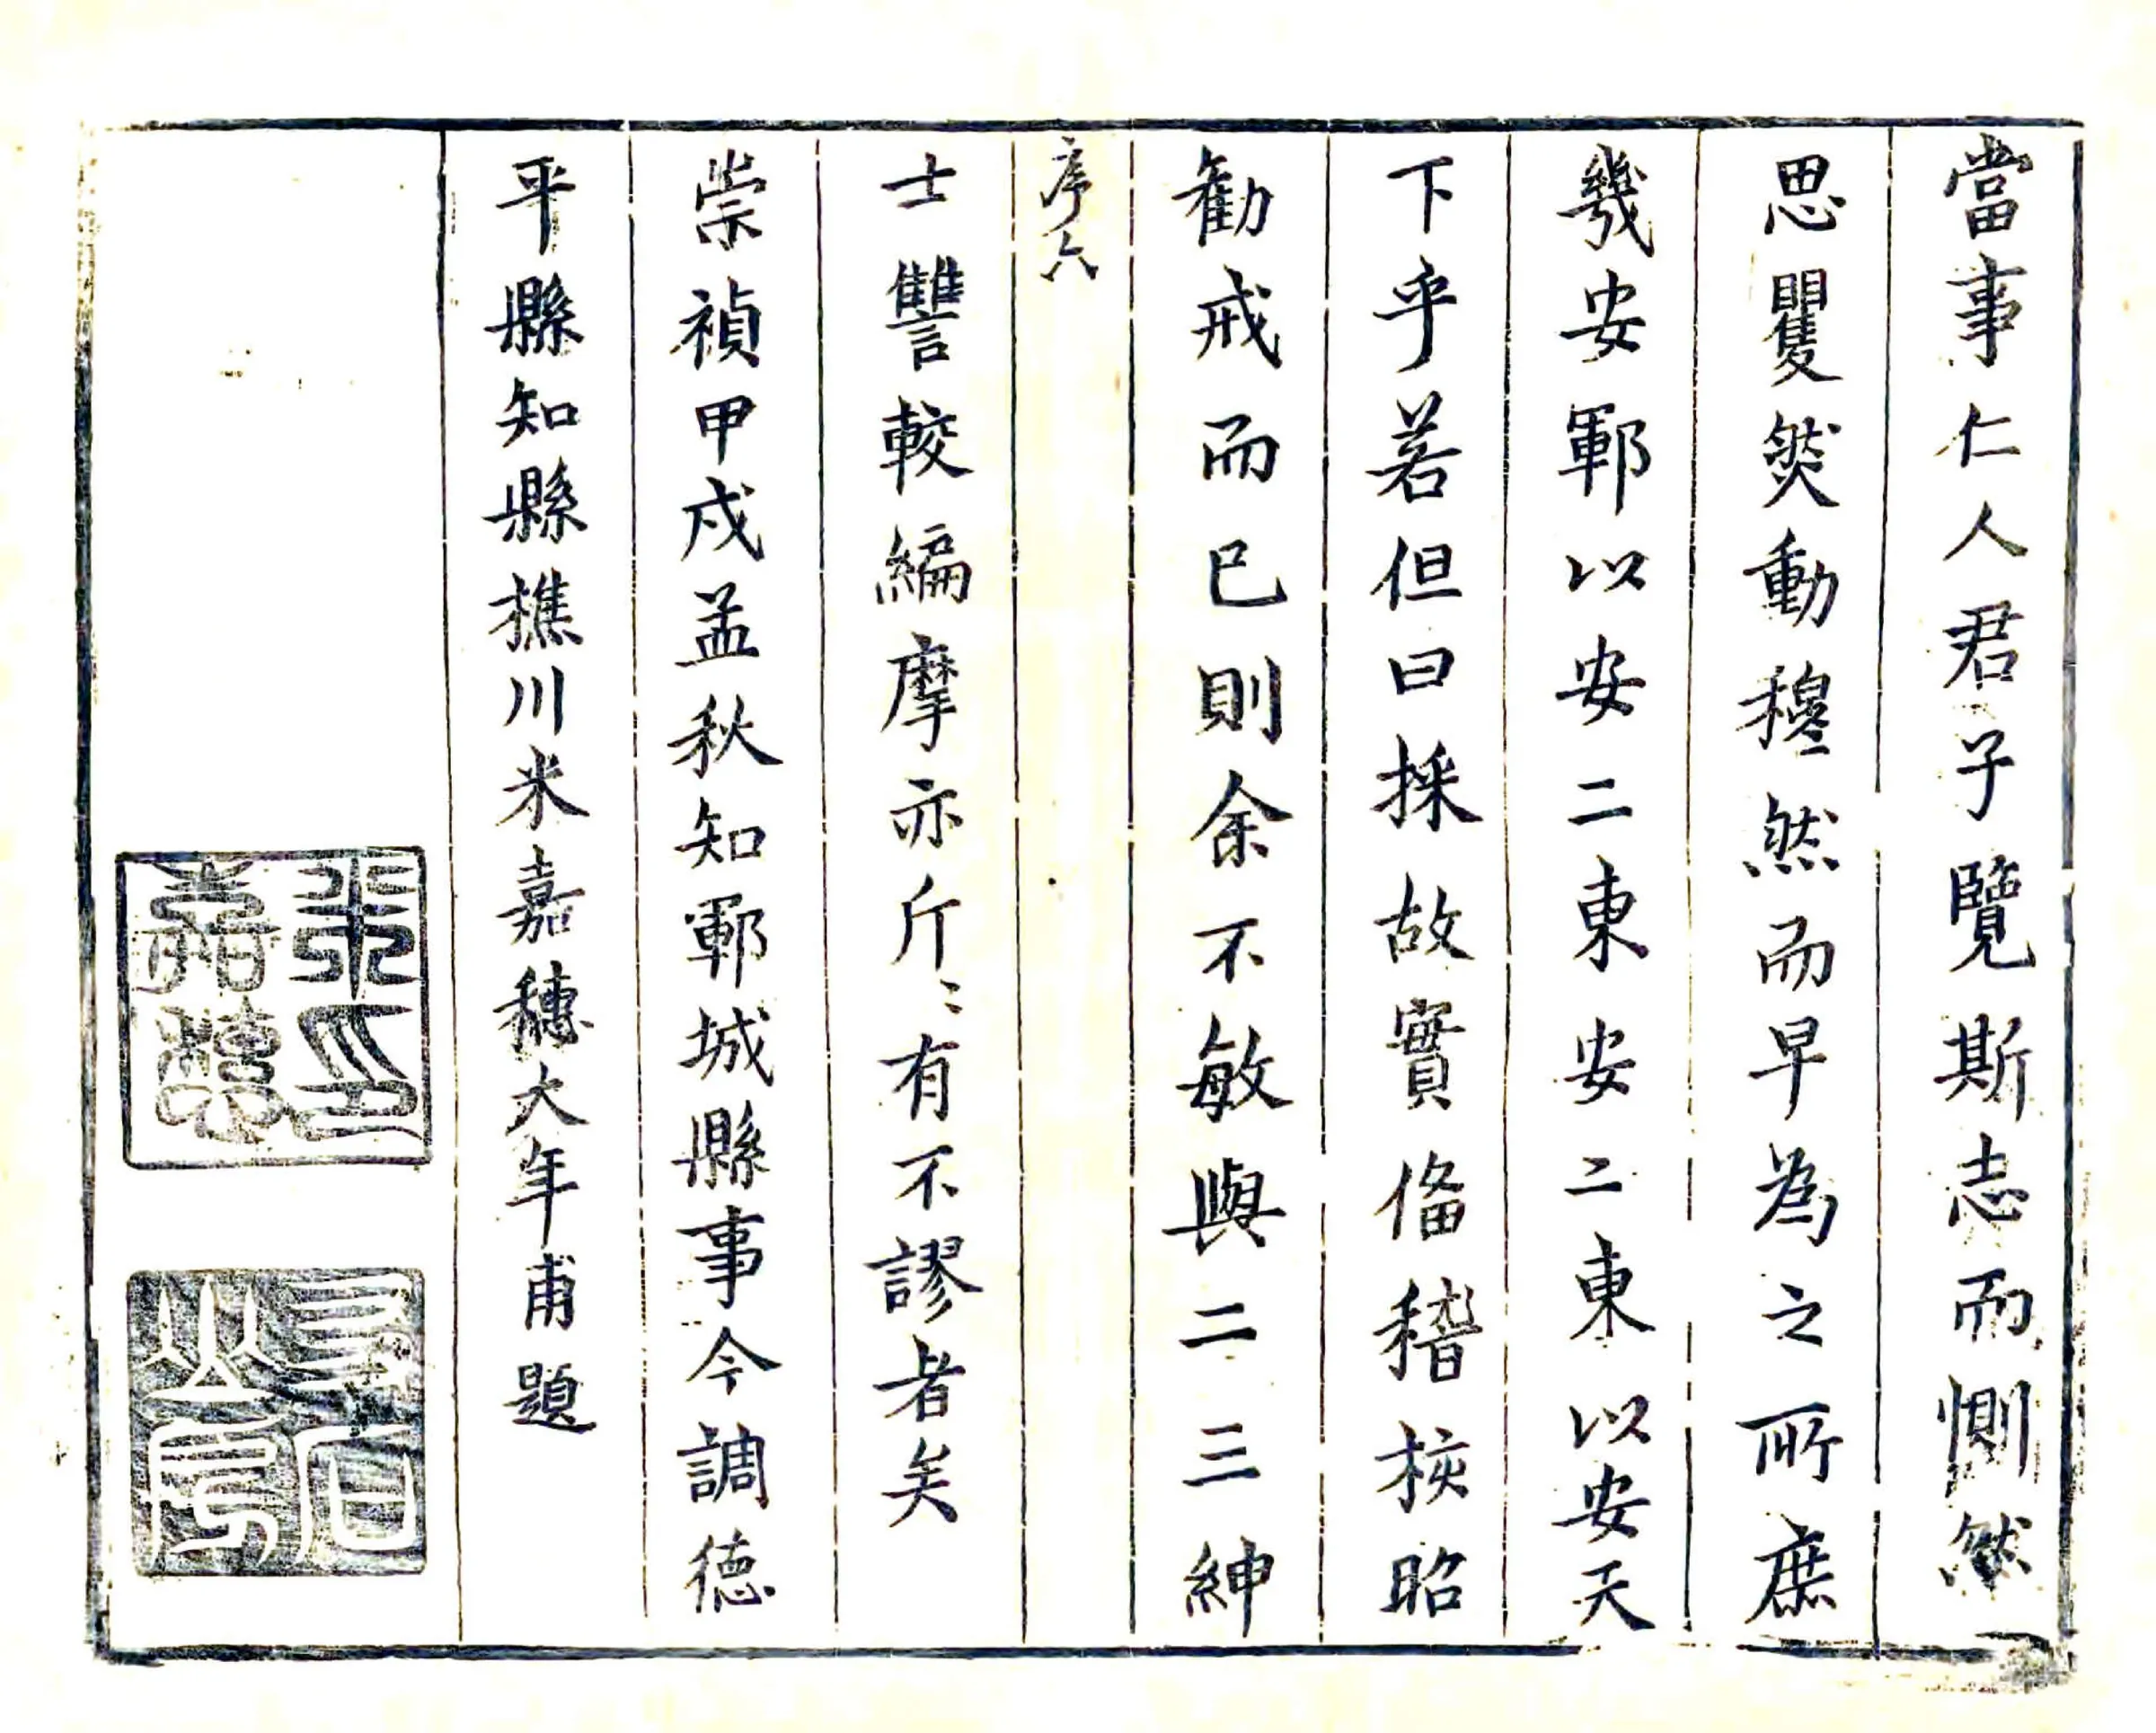 當事仁人君子覽斯志而惻然
思矍然動穆然而早為之所庶
幾安鄆以安二東安二東以安天
下乎若但曰採故實俻稽核昭
勸戒而已則余不敏與二三紳
序六
士讐較編摩亦斤〻有不謬者矣
崇禎甲戌孟秋知鄆城縣事今調德
平縣知縣撨川米嘉穗大年甫題
米印嘉穗